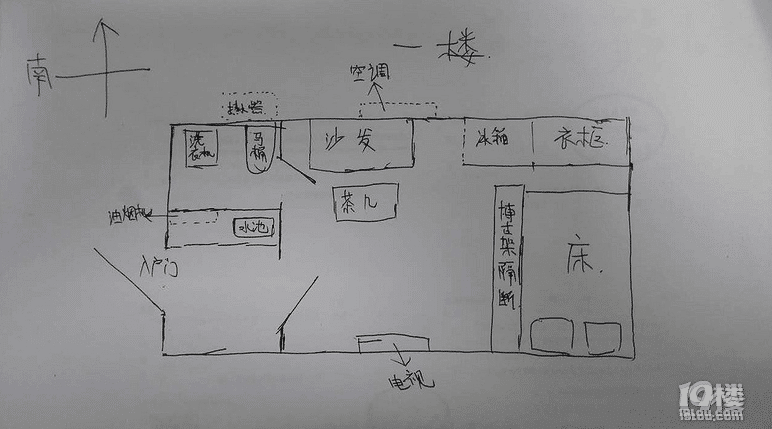 一楼
南
空调
热水器
洗
衣机
马
桶
沙发
冰箱
衣柜
茶几
油烟机
水池
博
古
架
隔
断
床
入户门
电视
19楼
19lou.com